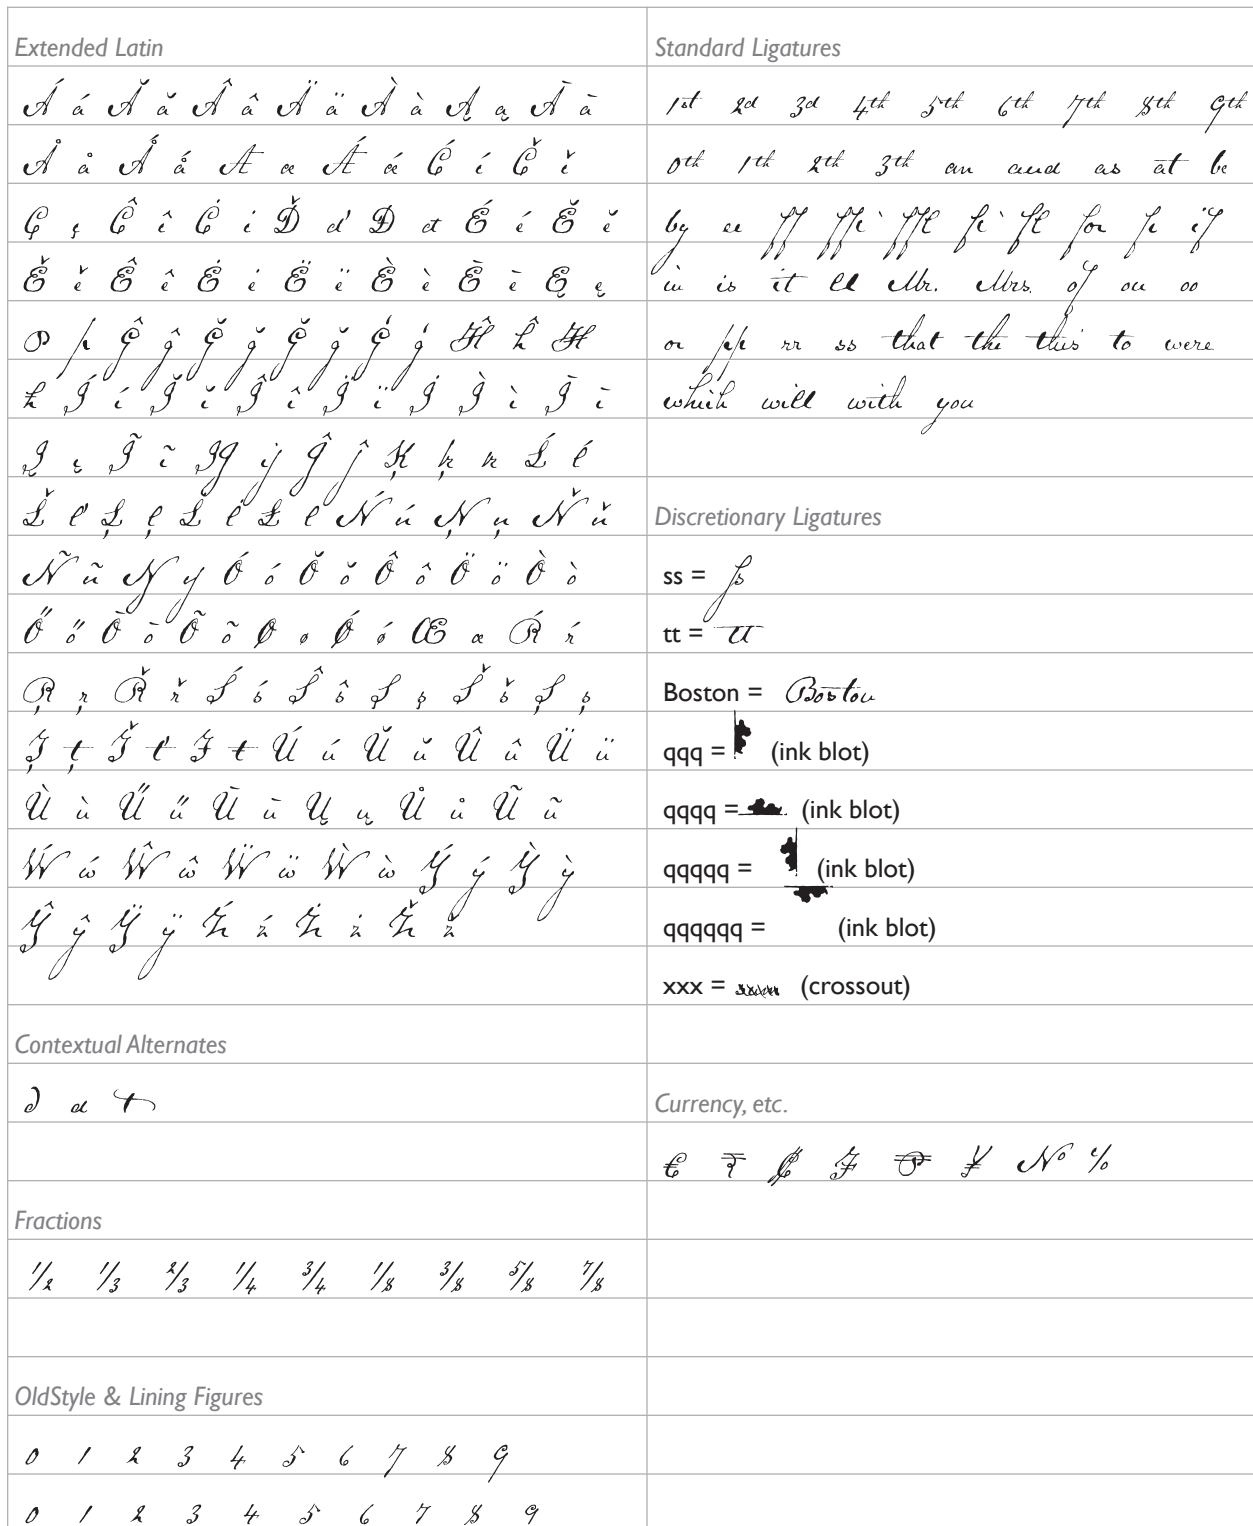 Extended Latin
Á á Ă ă Â â Ä ä À à Ą ą Ā ā
Å å Ǻ ǻ Æ æ Ǽ ǽ Ć ć Č č
Ç ç Ĉ ĉ Ċ ċ Ď ď Đ đ É é Ĕ ĕ
Ě ě Ê ê Ė ė Ë ë È è Ē ē Ę ę
Ĝ ĝ Ğ ğ Ģ ģ Ĥ ĥ Ħ
ħ Í í Ĭ ĭ Î î Ï ï İ Ì ì Ī ī
Į į Ĩ ĩ IJ ij Ĵ ĵ Ķ ķ ĸ Ĺ ĺ
Ľ ľ Ļ ļ Ŀ ŀ Ł ł Ń ń Ņ ņ Ň ň
Ñ ñ Ŋ ŋ Ó ó Ŏ ŏ Ô ô Ö ö Ò ò
Ő ő Ō ō Õ õ Ø ø Ǿ ǿ Œ œ Ŕ ŕ
Ŗ ŗ Ř ř Ś ś Ŝ ŝ Ş ş Š š Ș ș
Ţ ţ Ť ť Ŧ ŧ Ú ú Ŭ ŭ Û û Ü ü
Ù ù Ű ű Ū ū Ų ų Ů ů Ũ ũ
Ẃ ẃ Ŵ ŵ Ẅ ẅ Ẁ ẁ Ý ý Ỳ ỳ
Ŷ ŷ Ÿ ÿ Ź ź Ż ż Ž ž
Contextual Alternates
d t
Fractions
1/2 1/3 2/3 1/4 3/4 1/8 3/8 5/8 7/8
OldStyle & Lining Figures
0 1 2 3 4 5 6 7 8 9
0 1 2 3 4 5 6 7 8 9
Standard Ligatures
1st 2d 3d 4th 5th 6th 7th 8th 9th
0th 1th 2th 3th an and as at be
by ee ff ffi ffl fi fl for fr if
in is it ll Mr. Mrs. of on oo
or pp rr ss that the this to were
which will with you
Discretionary Ligatures
ss = ss
tt = tt
Boston = Boston
qqq = (ink blot)
qqqq = (ink blot)
qqqqq = (ink blot)
qqqqqq = (ink blot)
xxx = (crossout)
Currency, etc.
€ ₣ ₱ ¥ № %